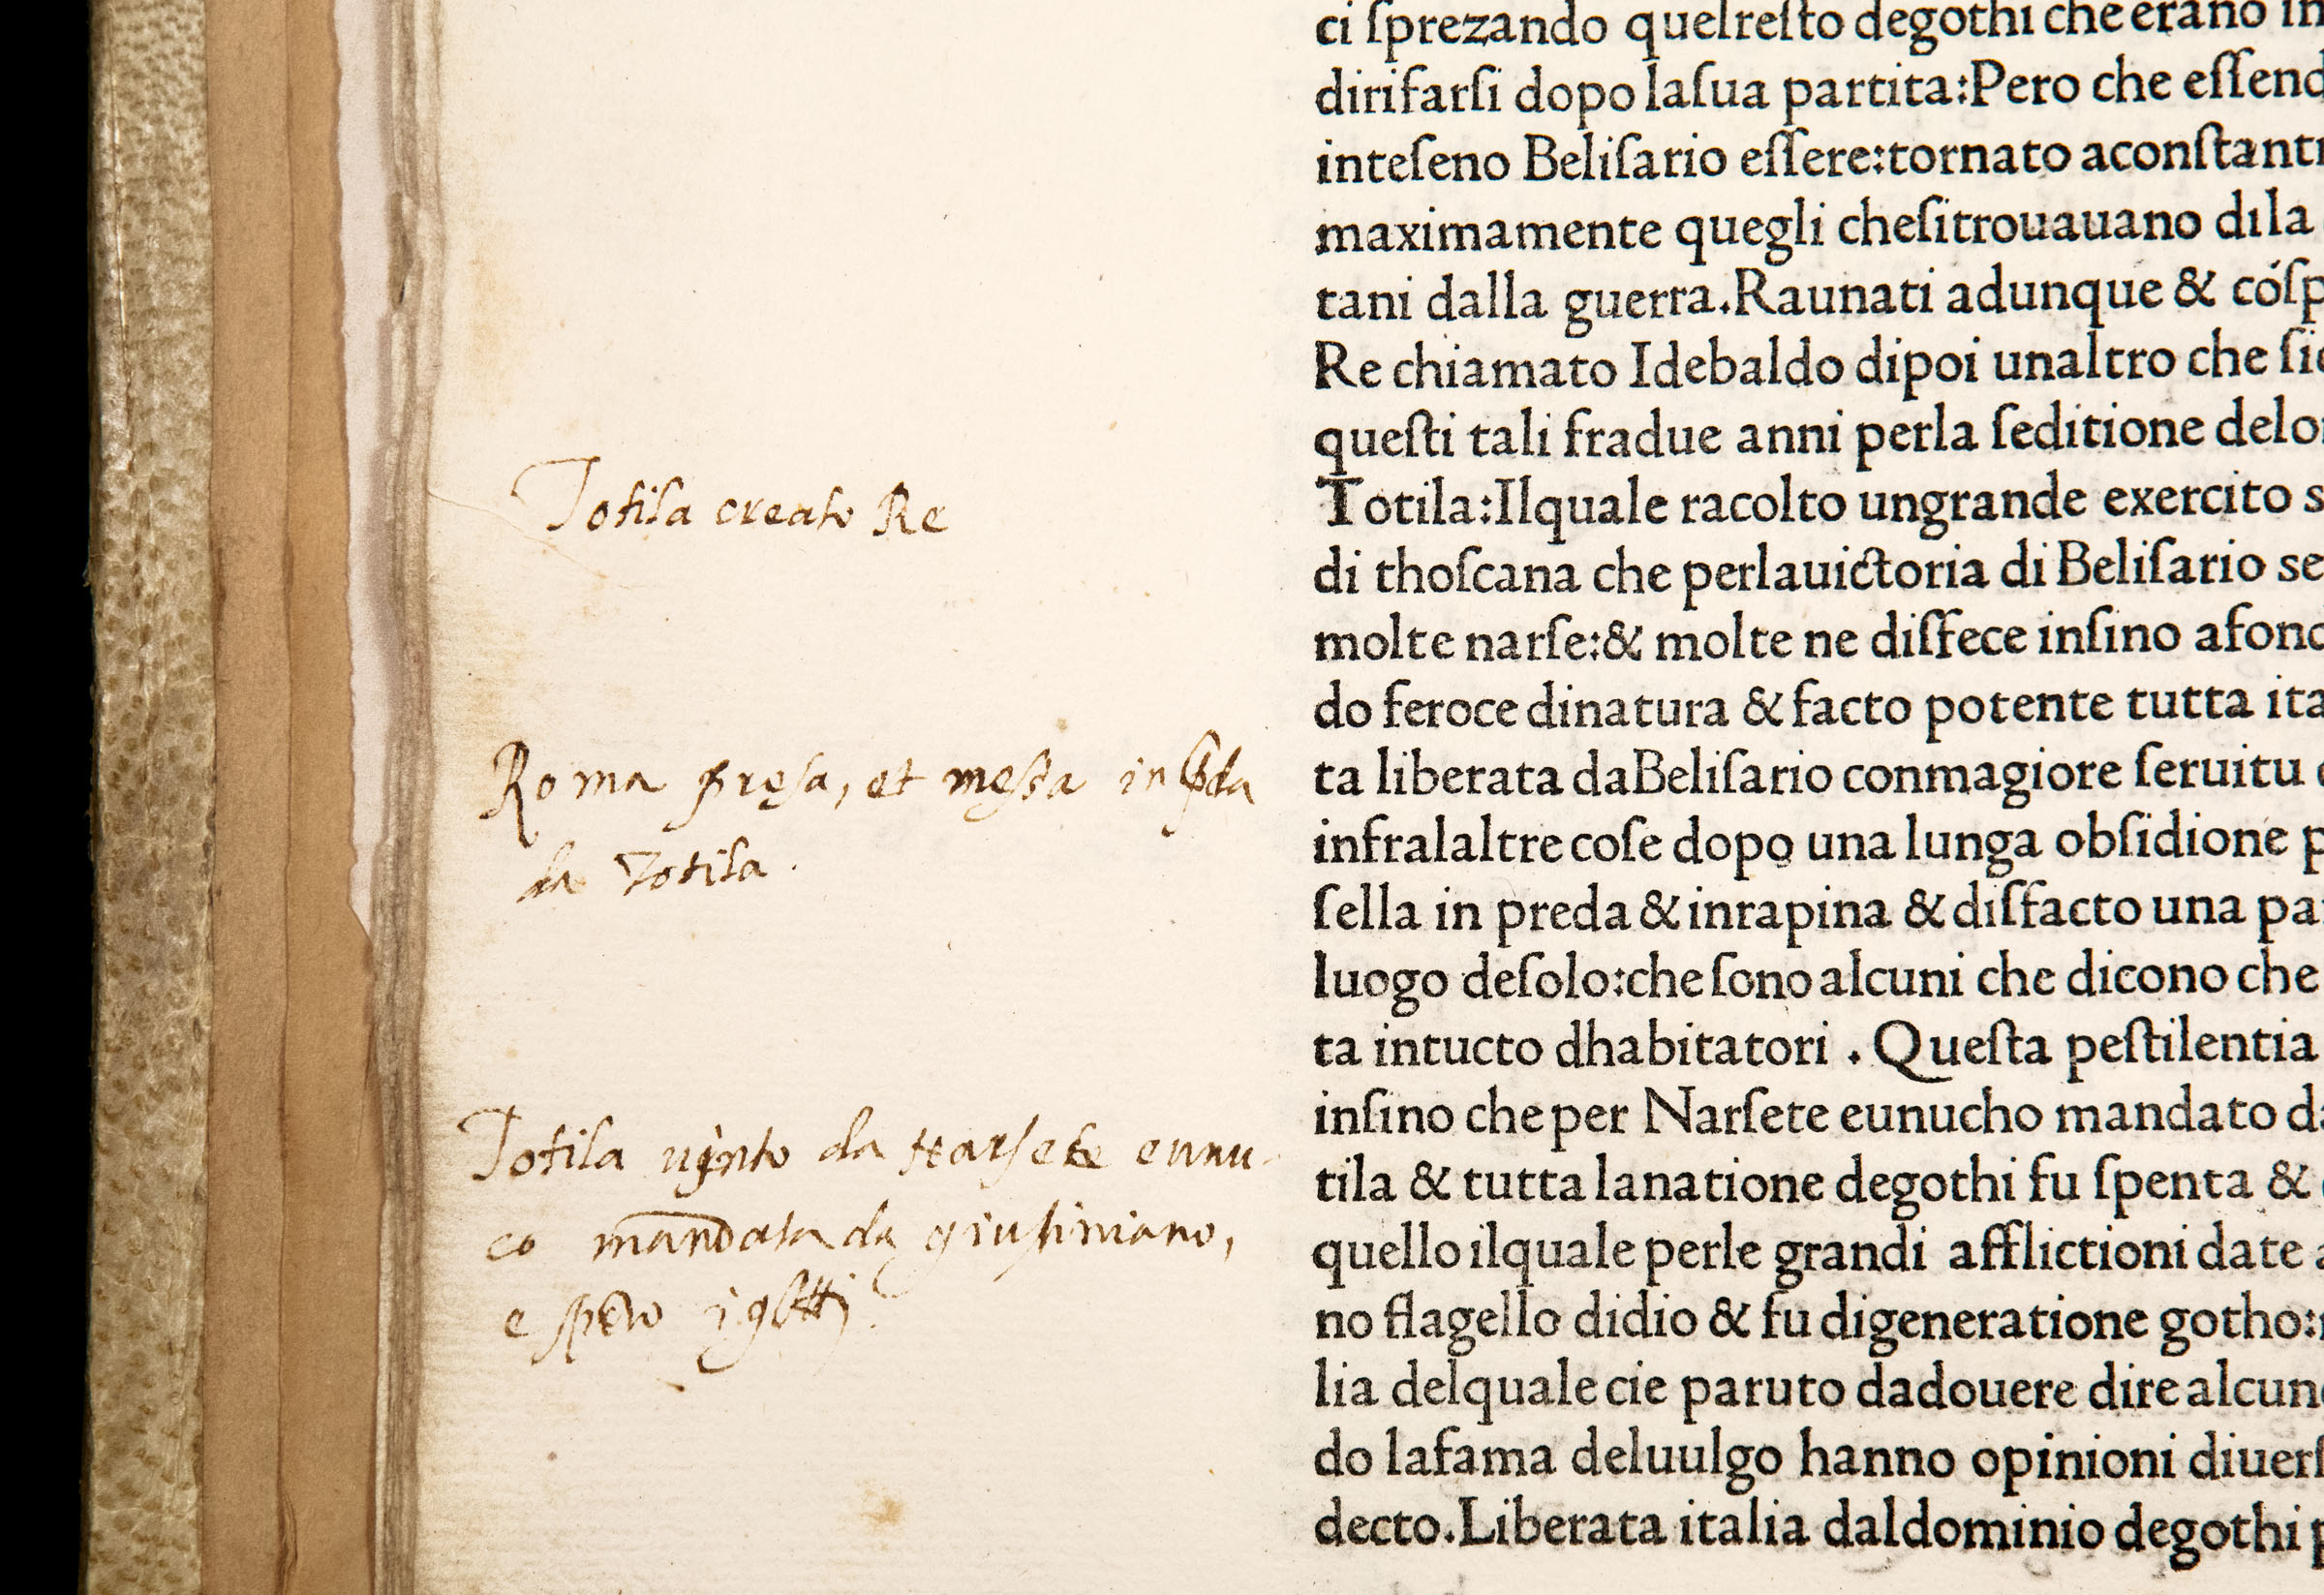 Totila creato Re
Roma presa, et messa in pda
da Totila.
Totila uinto da Narsete eunu-
co mandata da giustiniano,
e spēto i gotti.
ci ſprezando quelreſto degothi che erano in
dirifarſi dopo laſua partita:Pero che eſſend
inteſeno Beliſario eſſere:tornato aconſtanti
maximamente quegli cheſitrouauano dila
tani dalla guerra.Raunati adunque & cóſp
Re chiamato Idebaldo dipoi unaltro che ſi
queſti tali fradue anni perla ſeditione delo
Totila:Ilquale racolto ungrande exercito s
di thoſcana che perlauictoria di Beliſario se
molte narſe:& molte ne diſfece inſino afond
do feroce dinatura & facto potente tutta ita
ta liberata daBeliſario conmagiore ſeruitu
infralaltre coſe dopo una lunga obſidione p
ſella in preda & inrapina & diſfacto una pa
luogo deſolo:che ſono alcuni che dicono che
ta intucto dhabitatori . Queſta peſtilentia
inſino che per Narſete eunucho mandato da
tila & tutta lanatione degothi fu ſpenta &
quello ilquale perle grandi afflictioni date a
no flagello didio & fu digeneratione gotho:
lia delquale cie paruto dadouere dire alcun
do lafama deluulgo hanno opinioni diuerſ
decto.Liberata italia daldominio degothi p